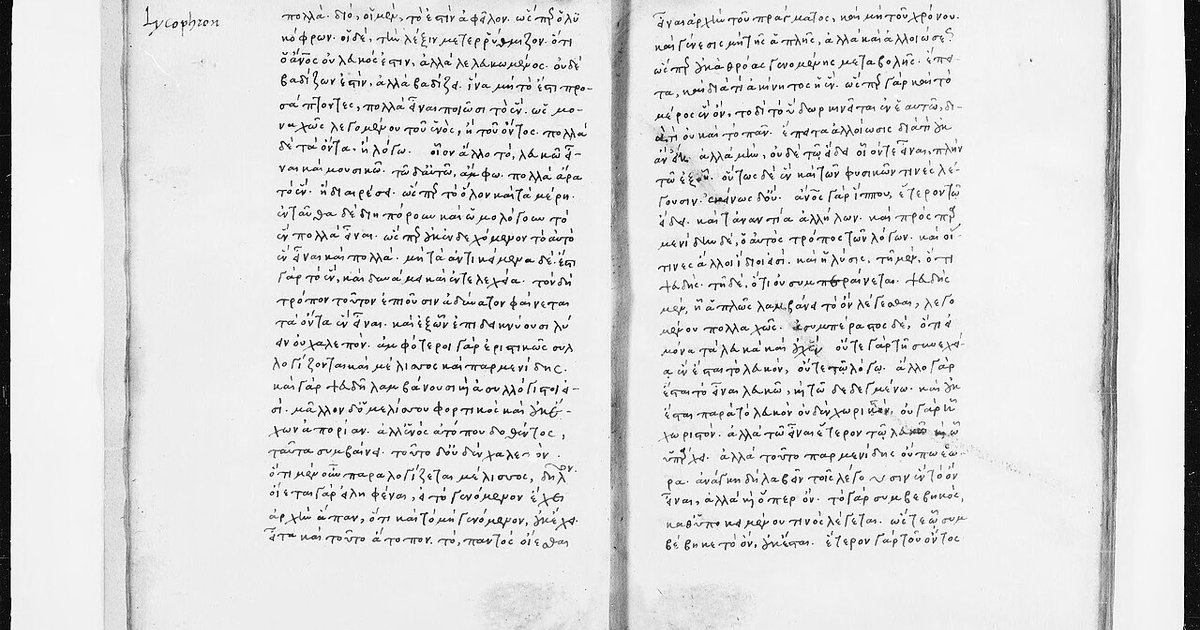 Lycophron
πολλά. διὸ, οἱ μὲν, τὸ ἐστὶν ἀφεῖλον. ὥσπερ ὁ λυ
κόφρων. οἱ δὲ, τὴν λέξιν μετερρύθμιζον. ὅτι
ὁ ἄνος οὐ λευκός ἐστιν, ἀλλὰ λελεύκωμενος. οὐδὲ
βαδίζων ἐστὶν, ἀλλὰ βαδίζει. ἵνα μὴ τὸ ἔστι προ-
σάπτοντες, πολλὰ εἶναι ποιῶσι τὸ ἕν. ὡς μο-
ναχῶς λεγομένου τοῦ ἑνὸς, ἢ τοῦ ὄντος. πολλὰ
δὲ τὰ ὄντα. ἢ λόγῳ. οἷον ἄλλο τὸ, λευκῷ εἶ-
ναι καὶ μουσικῷ. τῶ δ' αὐτῶ, ἄμφω. πολλὰ ἄρα
τὸ ἕν. ἢ διαιρέσει. ὥσπερ τὸ ὅλον καὶ τὰ μέρη.
ἐνταῦθα δὲ διηπόρουν καὶ ὡμολόγουν τὸ
ἓν πολλὰ εἶναι. ὥσπερ οὐκ ἐνδεχόμενον τὸ αὐτὸ
ἓν εἶναι καὶ πολλά. μὴ τἀντικείμενα δέ. ἔστι
γὰρ τὸ ἓν, καὶ δυνάμει καὶ ἐντελεχεία. τὸν δὴ
τρόπον τοῦτον ἐπιοῦσιν ἀδύνατον φαίνεται
τὰ ὄντα ἓν εἶναι. καὶ ἐξ ὧν ἐπιδεικνύουσι λύ
ειν οὐ χαλεπόν. ἀμφότεροι γὰρ ἐριστικῶς συλ
λογίζονται καὶ μέλισσος καὶ παρμενίδης.
καὶ γὰρ ψευδῆ λαμβάνουσι καὶ ἀσυλλόγιστοί εἰ-
σι. μᾶλλον δ' ὁ μελίσσου φορτικὸς καὶ οὐκ ἔ-
χων ἀπορίαν. ἀλλ' ἑνὸς ἀτόπου δοθέντος,
ταῦτα συμβαίνει. τοῦτο δ' οὐδὲν χαλεπόν.
ὅτι μὲν οὖν παραλογίζεται μέλισσος, δῆλον.
οἴεται γὰρ εἰληφέναι, εἰ τὸ γενόμενον ἔχει
ἀρχὴν ἅπαν, ὅτι καὶ τὸ μὴ γενόμενον, οὐκ ἔχει.
εἶτα καὶ τοῦτο ἄτοπον. τὸ, παντὸς οἴεσθαι
εἶναι ἀρχὴν τοῦ πράγματος, καὶ μὴ τοῦ χρόνου.
καὶ γενέσεως μὴ τῆς ἁπλῆς, ἀλλὰ καὶ ἀλλοιώσεως
ὥσπερ οὐκ ἀθρόας γενομένης μεταβολῆς. ἔπει
τα, καὶ διὰ τί ἀκίνητος ἢ ἕν. ὥσπερ γὰρ καὶ τὸ
μέρος ἓν ὂν, τοδὶ τὸ ὕδωρ κινεῖται ἐν ἑαυτῶ, δι-
ατί οὐ καὶ τὸ παν. ἔπειτα ἀλλοίωσις διατί οὐκ
ἂν εἴη. ἀλλὰ μὴν, οὐδὲ τῶ εἴδει οἷόντε ἓν εἶναι, πλὴν
τῶ ἐξ οὗ. οὕτως δὲ ἓν καὶ τῶν φυσικῶν τινες λέ-
γουσιν. ἐκείνως δ' οὔ. ἄνος γὰρ ἵππου, ἕτερον τῶ
εἴδει. καὶ τἀναντία ἀλλήλων. καὶ πρὸς παρ
μενίδην δὲ, ὁ αὐτὸς τρόπος τῶν λόγων. καὶ εἴ
τινες ἄλλοι ἴδιοι εἰσί. καὶ ἡ λύσις, τῇ μὲν, ὅτι
ψευδής. τῇ δὲ, ὅτι οὐ συμπεραίνεται. ψευδὴς
μὲν, ᾗ ἁπλῶς λαμβάνει τὸ ὂν λέγεσθαι, λεγο
μένου πολλαχῶς. ἀσυμπέραντος δὲ, ὅτι εἰ
μόνα τὰ λευκὰ καὶ οὐχ ἓν οὔτε γὰρ τῇ συνεχεί-
α ἓν ἔσται τὸ λευκὸν, οὔτε τῷ λόγῳ. ἄλλο γὰρ
ἔσται τὸ εἶναι λευκῶ, καὶ τῶ δεδεγμένω. καὶ οὐκ
ἔσται παρὰ τὸ λευκὸν οὐδὲν χωριστόν. οὐ γὰρ ᾗ
χωριστὸν. ἀλλὰ τῶ εἶναι ἕτερον τῶ λευκὸν καὶ ᾧ
ὑπάρχει. ἀλλὰ τοῦτο παρμενίδης οὔπω ἑώ-
ρα. ἀνάγκη δὴ λαβεῖν τοῖς λέγουσιν ἓν τὸ ὂν
εἶναι, ἀλλὰ καὶ ὅπερ ὄν. τὸ γὰρ συμβεβηκὸς,
καθ' ὑποκειμένου τινὸς λέγεται. ὥστε ᾧ συμ
βέβηκε τὸ ὂν, οὐκ ἔσται. ἕτερον γὰρ τοῦ ὄντος